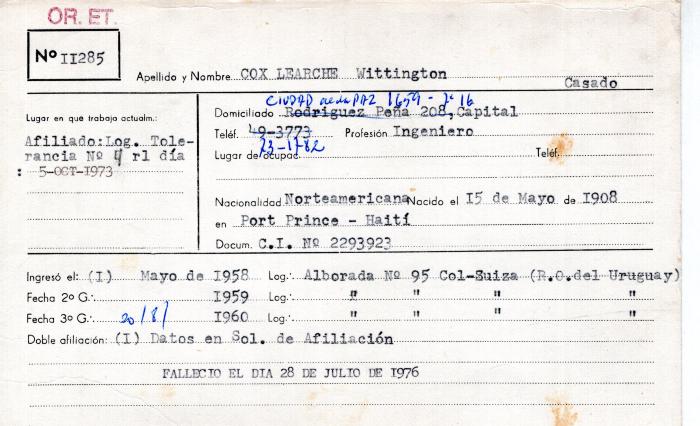 OR. ET.
Nº II285
Apellido y Nombre COX LEARCHE Wittington
Casado
CIUDAD de la PAZ 1659 - Pº 16
Lugar en qué trabaja actualm.: Domiciliado Rodriguez Peña 208, Capital
Afiliado: Log. Tole- Teléf. 49-3773 Profesión Ingeniero
23-1782
rancia Nº 4 rl día Lugar de ocupac. Teléf.
: 5-OCT-1973
Nacionalidad Norteamericana Nacido el I5 de Mayo de I908
en Port Prince - Haití
Docum. C.I. Nº 2293923
Ingresó el: (I) Mayo de I958 Log.· Alborada Nº 95 Col-Suiza (R.O.del Uruguay)
Fecha 2º G.· I959 Log.· " " " "
Fecha 3º G.· 20/8/ I960 Log.· " " " "
Doble afiliación: (I) Datos en Sol. de Afiliación
FALLECIO EL DIA 28 DE JULIO DE I976